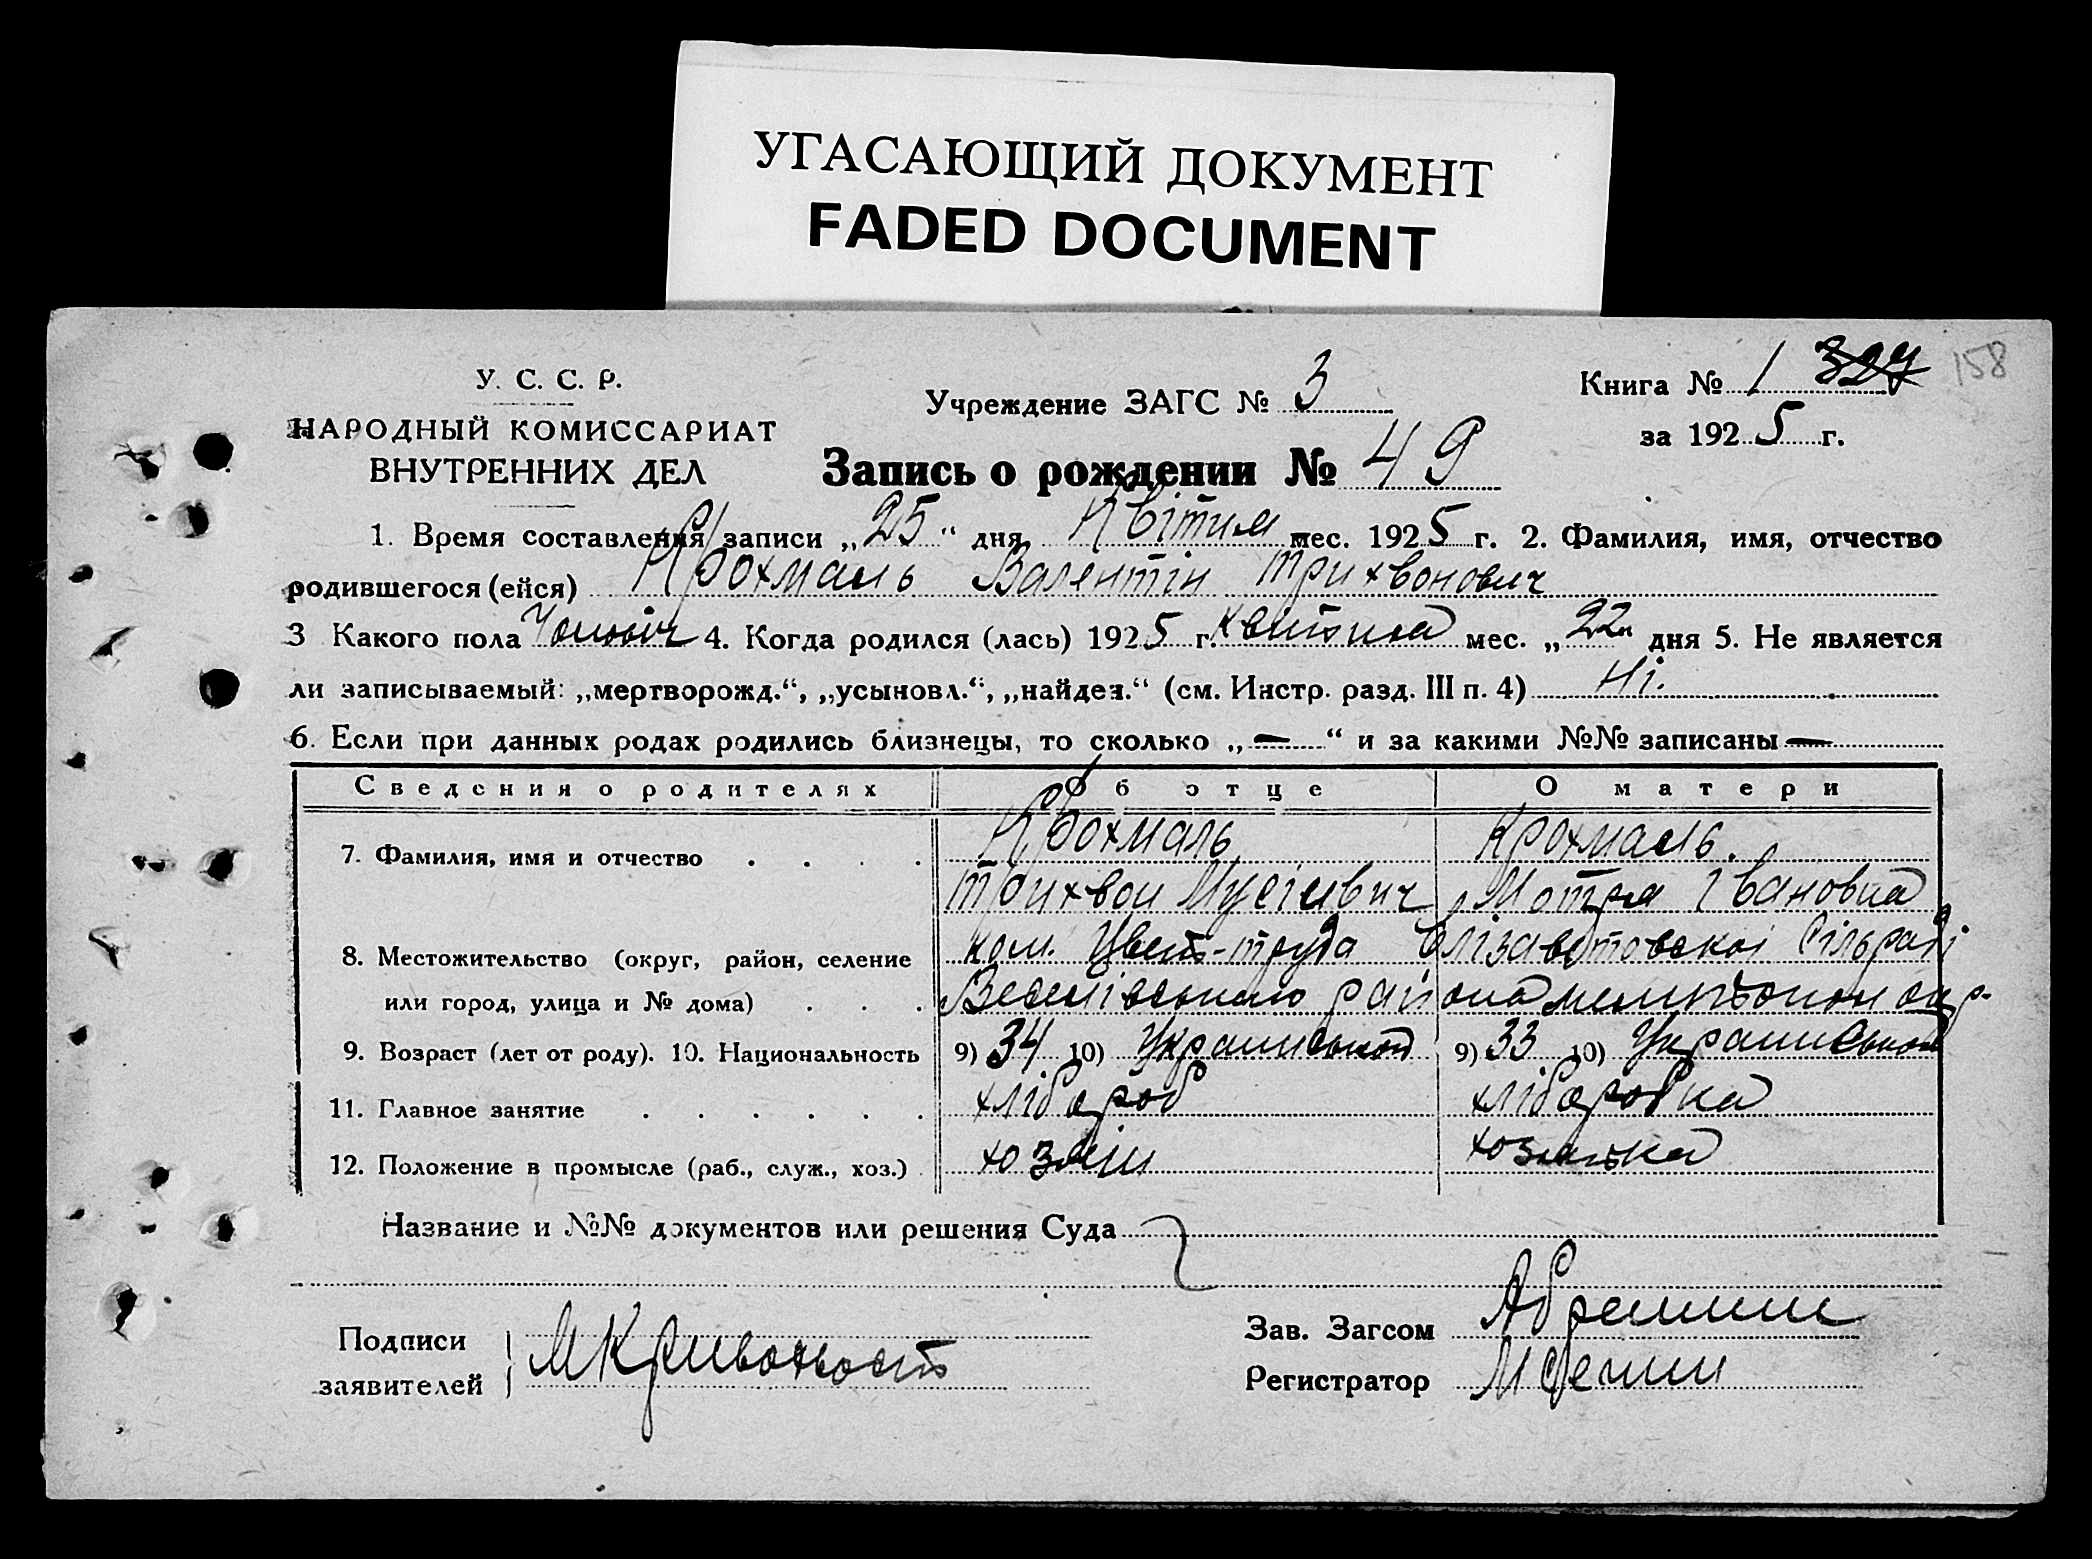 УГАСАЮЩИЙ ДОКУМЕНТ
FADED DOCUMENT
У. С. С. Р.
НАРОДНЫЙ КОМИССАРИАТ
ВНУТРЕННИХ ДЕЛ
Учреждение ЗАГС № 3
Книга № 1 327 158
за 1925 г.
Запись о рождении № 49
1. Время составления записи „25“ дня Квітня мес. 1925 г. 2. Фамилия, имя, отчество
родившегося (ейся) Крохмаль Валентін Трихвонович
3 Какого пола Чоловіч 4. Когда родился (лась) 1925 г. Квітня мес. „22“ дня 5. Не является
ли записываемый: „мертворожд.“, „усыновл.“, „найден.“ (см. Инстр. разд. III п. 4) Ні.
6. Если при данных родах родились близнецы, то сколько „—“ и за какими №№ записаны —
Сведения о родителях Об отце О матери
7. Фамилия, имя и отчество . . . . Крохмаль Крохмаль.
Трихвон Мусієвич Мотря Івановна
8. Местожительство (округ, район, селение ком. Цвет-труда Єлізаветовскоі Сільраді
или город, улица и № дома) . . . Веселівського района окр.
9. Возраст (лет от роду). 10. Национальность 9) 34 10) Українській 9) 33 10) Українській
11. Главное занятие . . . . . . хлібороб хліборобка
12. Положение в промысле (раб., служ., хоз.) хозяін хозяйка
Название и №№ документов или решения Суда
Подписи
заявителей
М Кривохвост
Зав. Загсом
Регистратор